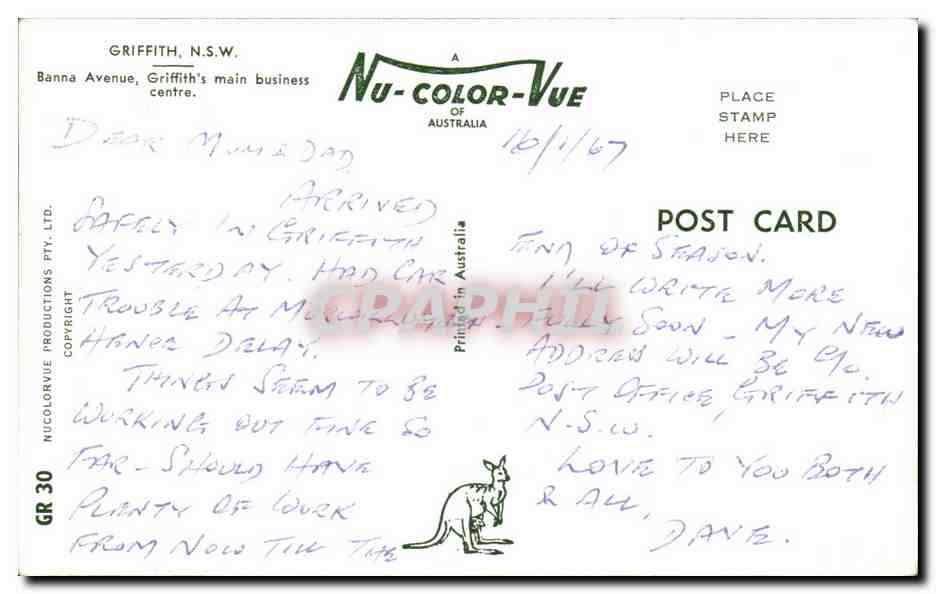 GRIFFITH, N.S.W.
Banna Avenue, Griffith's main business
centre.
A
NU-COLOR-VUE
OF
AUSTRALIA
PLACE
STAMP
HERE
POST CARD
NUCOLORVUE PRODUCTIONS PTY. LTD.
COPYRIGHT
GR 30
Printed in Australia
CPAPHIL
DEAR MUM & DAD
16/1/67
ARRIVED
SAFELY IN GRIFFITH
YESTERDAY. HAD CAR
TROUBLE AT
HENCE DELAY.
THINGS SEEM TO BE
WORKING OUT FINE SO
FAR - SHOULD HAVE
PLENTY OF WORK
FROM NOW TILL THE
END OF SEASON.
I'LL WRITE MORE
FULLY SOON - MY NEW
ADDRESS WILL BE C/O.
POST OFFICE, GRIFFITH
N.S.W.
LOVE TO YOU BOTH
& ALL,
DAVE.